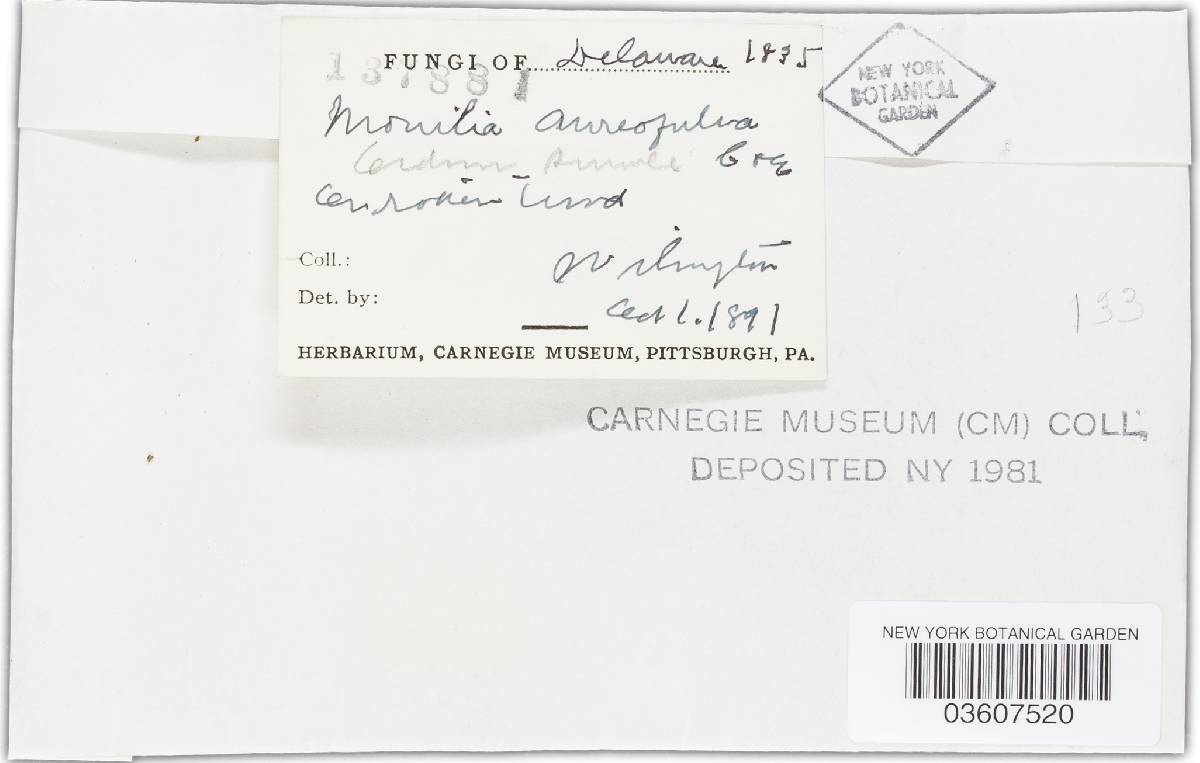 FUNGI OF Delaware 1835
137881
NEW YORK
BOTANICAL
GARDEN
Monilia aureofulva
C & E
on rotten wood
Coll.:
Wilmington
Det. by:
Oct 1. 1891
HERBARIUM, CARNEGIE MUSEUM, PITTSBURGH, PA.
133
CARNEGIE MUSEUM (CM) COLL,
DEPOSITED NY 1981
NEW YORK BOTANICAL GARDEN
03607520